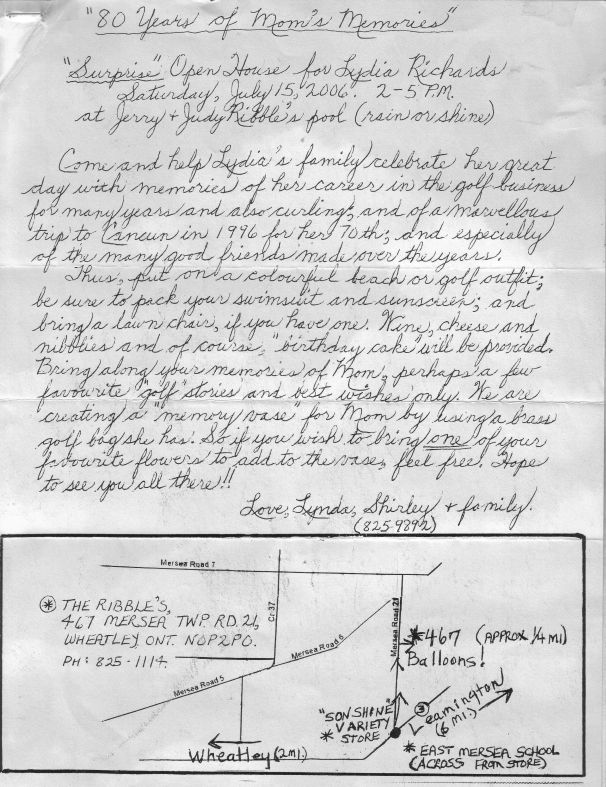 "80 Years of Mom's Memories"
"Surprise" Open House for Lydia Richards
Saturday, July 15, 2006. 2-5 P.M.
at Jerry + Judy Ribble's pool (rain or shine)
Come and help Lydia's family celebrate her great
day with memories of her career in the golf business
for many years and also curling; and of a marvellous
trip to Cancun in 1996 for her 70th; and especially
of the many good friends made over the years.
Thus, put on a colourful beach or golf outfit;
be sure to pack your swimsuit and sunscreen; and
bring a lawn chair, if you have one. Wine, cheese and
nibblies and of course, "birthday cake" will be provided.
Bring along your memories of Mom, perhaps a few
favourite "golf" stories and best wishes only. We are
creating a "memory vase" for Mom by using a brass
golf bag she has. So if you wish to bring one of your
favourite flowers to add to the vase, feel free. Hope
to see you all there!!
Love, Lynda, Shirley + family.
(825-9892)
Mersea Road 7
* THE RIBBLE'S,
467 MERSEA TWP. RD. 21,
WHEATLEY ONT. N0P2P0.
PH: 825-1114.
Cr-37
Mersea Road 6
Mersea Road 5
Mersea Road 21
*467 (APPROX 1/4 MI)
Balloons!
"SONSHINE"
VARIETY
* STORE
3
Leamington
(6 mi.)
Wheatley (2mi.)
* EAST MERSEA SCHOOL
(ACROSS FROM STORE)